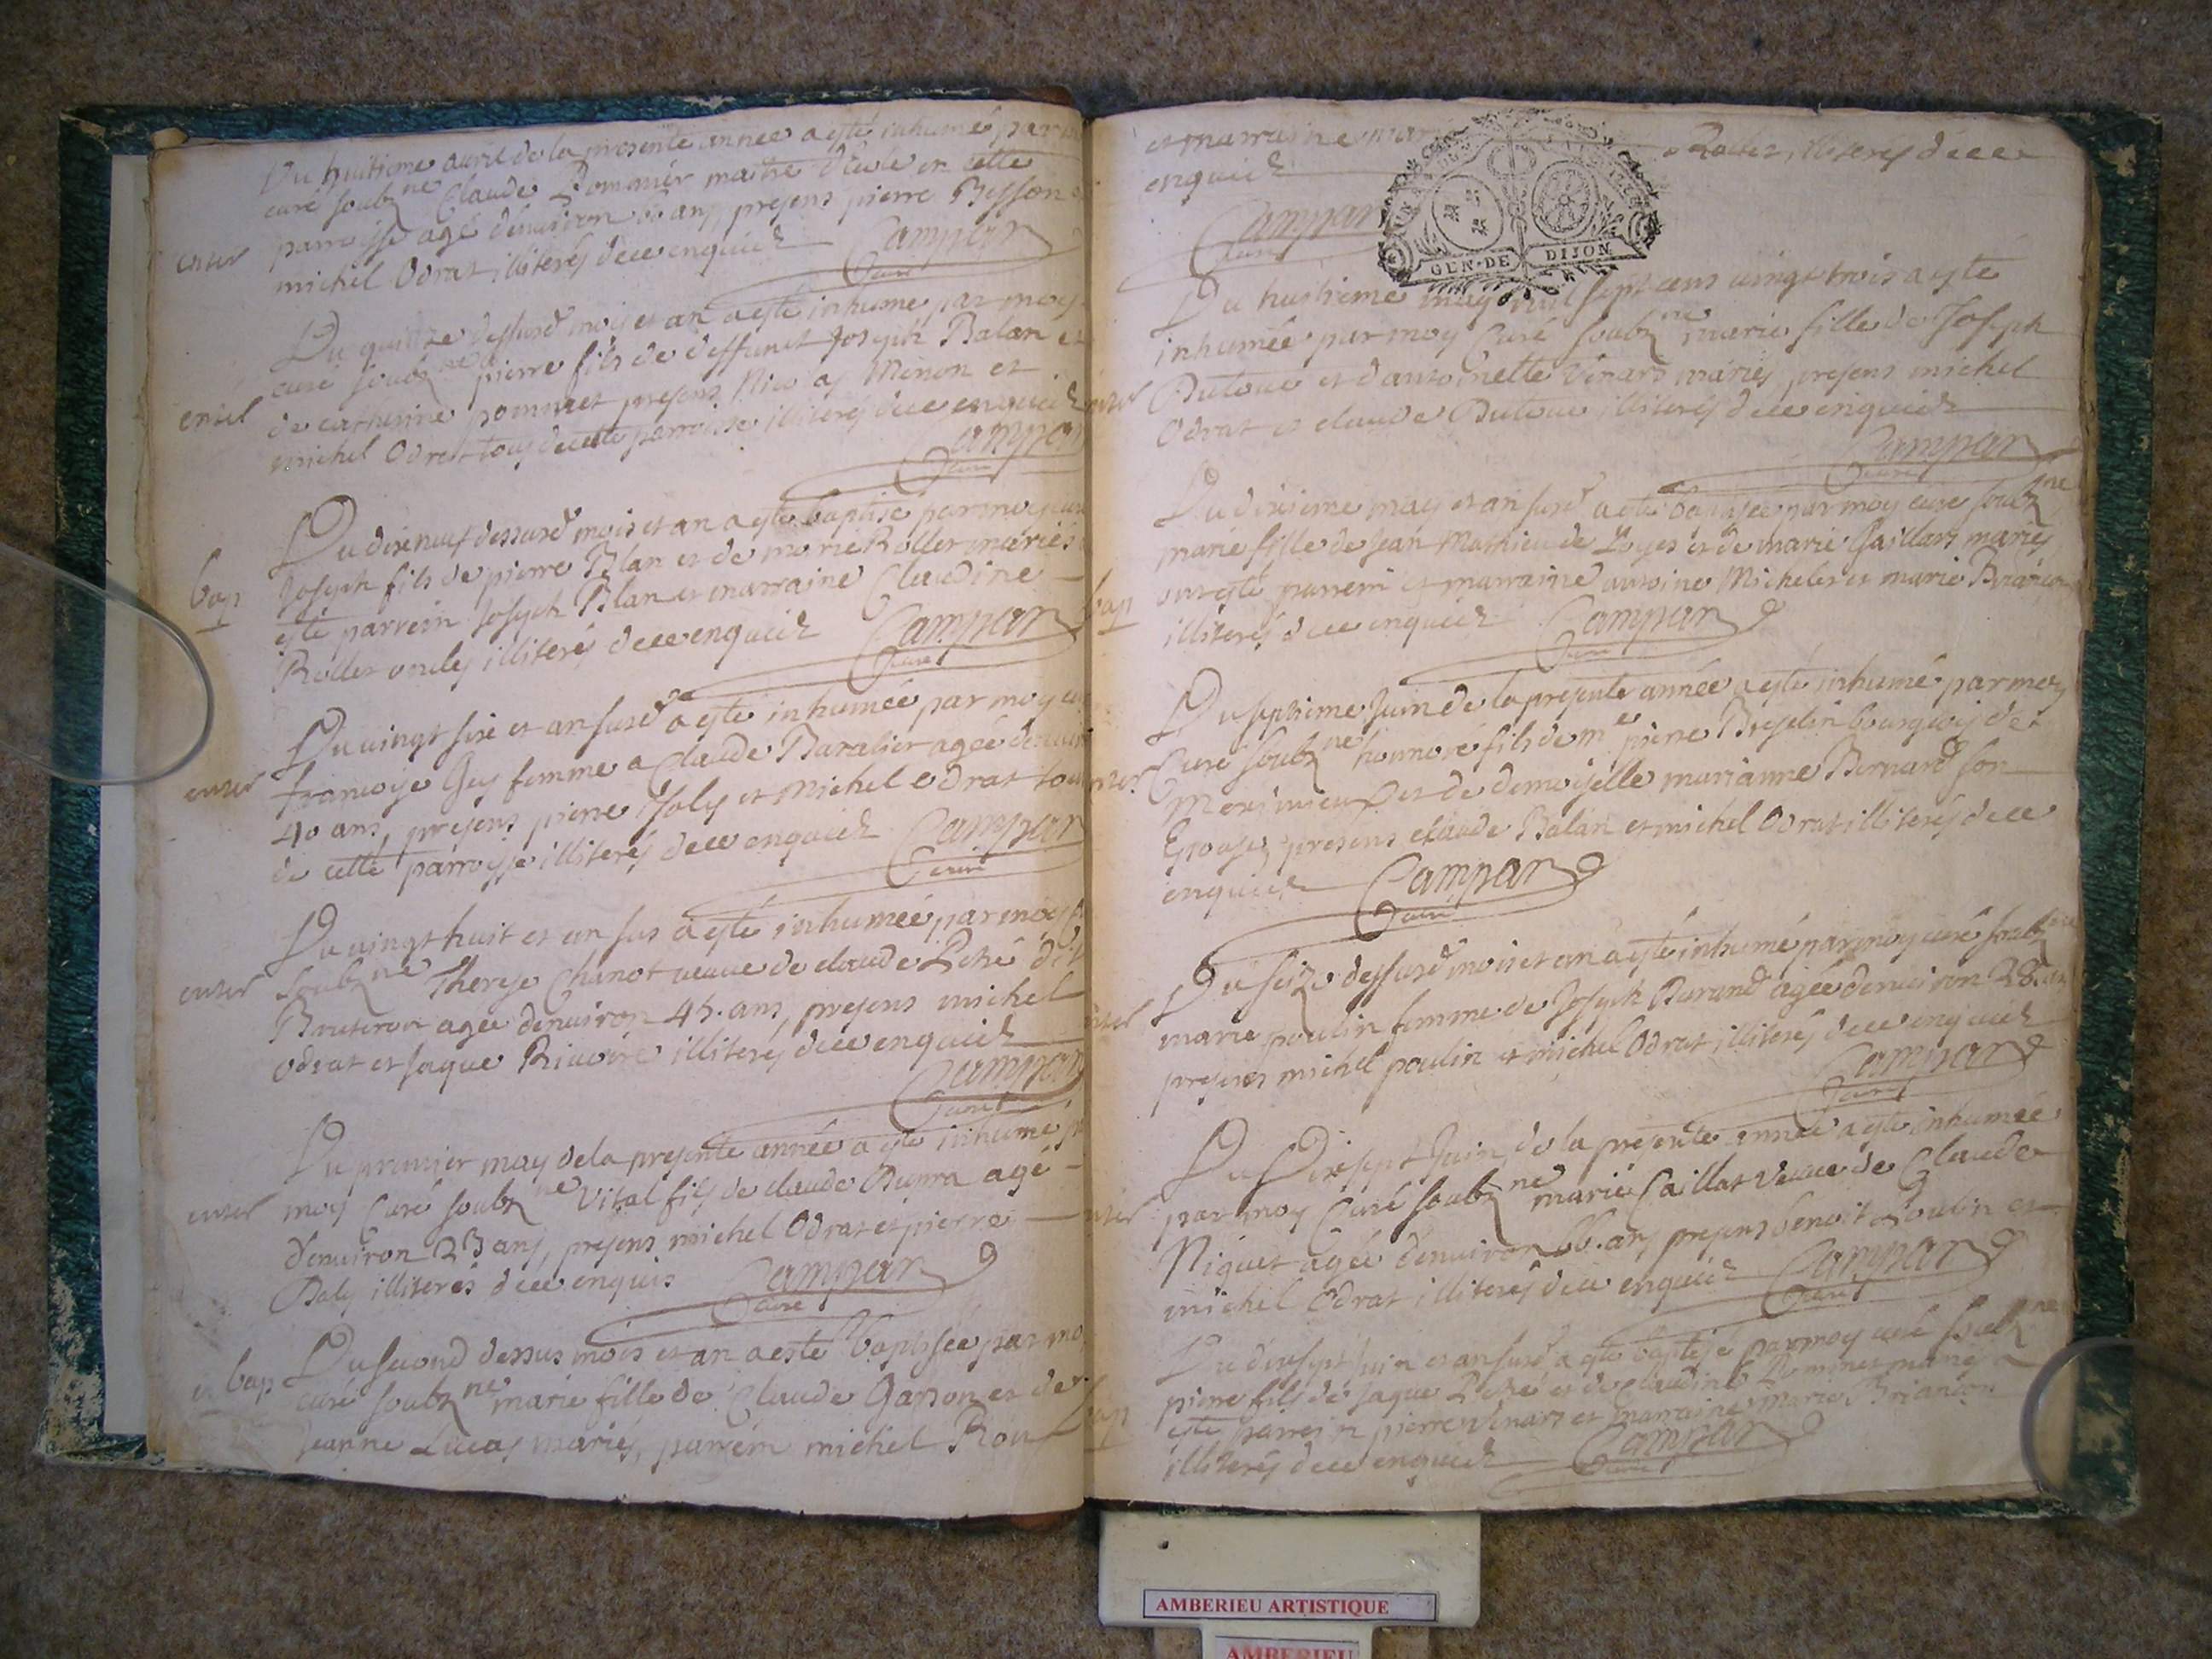 Du huitieme auril de la presente année a esté inhumé par
curé soubzne Claude Pommier maitre d'écule en cette
parroisse agé denuiron ans, presens pierre Besson
enter
michel Odrat illiterés dece enquich
Campan
Curé
Du quinze dessusd mois et an a esté inhumé par moy
curé soubzne pierre fils de deffunct Joseph Balan et
enter
de catherine pommier presens Nicolas Minon et
michel Odrat tous de cette parroisse illiterés dece enquich
Campan
Curé
Du dixneuf dessusd mois et an a esté baptisé par moy curé
bap
Joseph fils de pierre Blan et de marie Rollet mariés
esté parrein Joseph Blan et marraine Claudine
Rollet oncles illiterés dece enquich
Campan
Curé
Du uingt sixe et an susd a esté inhumée par moy cu
enter
francoise Guy femme a Claude Baralier agée denuiron
40 ans, presens pierre Joly et Michel Odrat tous
de cette parroisse illiterés dece enquich
Campan
Curé
Du uingt huit et an sus a esté inhumée par moy
enter
soubzne Therese Chanot ueuue de claude Peté de
Bouteron agée denuiron 45. ans, presens michel
Odrat et Jaque Riuoire illiterés dece enquich
Campan
Curé
Du premier may de la presente année a esté inhumé p
enter
moy Curé soubzne Vital fils de claude Dupra agé
denuiron 23 ans, presens michel Odrat et pierre
Joly illiterés dece enquis
Campan
Curé
Du second dessus mois et an a esté baptisée par mo
bap
curé soubzne marie fille de Claude Ganon et de
Jeanne Lucas mariés, parrein michel Roux
et marraine mar Rollet, illiterés dece
enquich
Campan
Curé
GEN·DE DIJON
Du huitieme may mil sept cens uingt trois a esté
inhumée par moy Curé soubzne marie fille de Joseph
enter
Dutour et d'antoinette Vinard mariés, presens michel
Odrat et claude Dutour illiterés dece enquich
Campan
Curé
Du dixieme may et an susd a esté baptisée par moy curé soubzne
marie fille de Jean Mathieu de Loyes et de marie Gaillard mariés
bap
ont esté parrein et marraine antoine Michelet et marie Briancon
illiterés dece enquich
Campan
Curé
Du septieme Juin de la presente année a esté inhumé par moy
Curé soubzne honnoré fils de me pierre Breselin bourgeois de
enter
Meximieux et de demoiselle marianne Bernard son
Epouse, presens claude Balan et michel Odrat illiterés dece
enquich
Campan
Curé
Du seize dessusd mois et an a esté inhumé par moy curé soubzne
marie poulin femme de Joseph Durand agée denuiron 28 ans
enter
presens michel poulin et michel Odrat illiterés dece enquich
Campan
Curé
Du Dixsept Juin de la presente année a esté inhumée
par moy Curé soubzne marie Caillat Veuue de Claude
enter
Niquet agée denuiron 66. ans presens benoit poulin et
michel Odrat illiterés dece enquich
Campan
Curé
Du dixsept Juin et an susd a esté baptisé par moy curé soubzne
pierre fils de Jaque Peté et de Claudine Pommet mariés
bap
esté parrein pierre Vinard et marraine Marie Briancon
illiterés dece enquich
Campan
Curé
AMBERIEU ARTISTIQUE
AMBERIEU